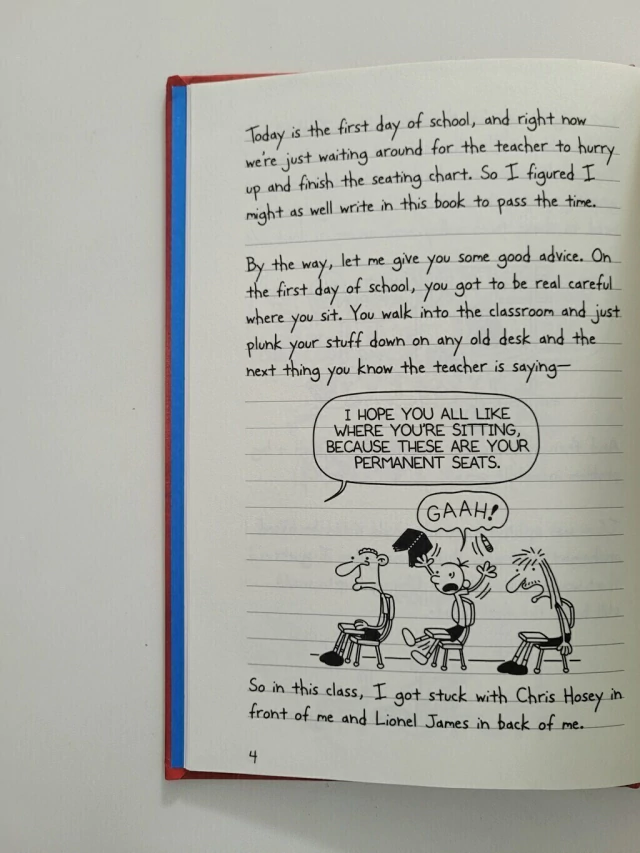 Today is the first day of school, and right now
we're just waiting around for the teacher to hurry
up and finish the seating chart. So I figured I
might as well write in this book to pass the time.
By the way, let me give you some good advice. On
the first day of school, you got to be real careful
where you sit. You walk into the classroom and just
plunk your stuff down on any old desk and the
next thing you know the teacher is saying—
I HOPE YOU ALL LIKE
WHERE YOU'RE SITTING,
BECAUSE THESE ARE YOUR
PERMANENT SEATS.
GAAH!
So in this class, I got stuck with Chris Hosey in
front of me and Lionel James in back of me.
4